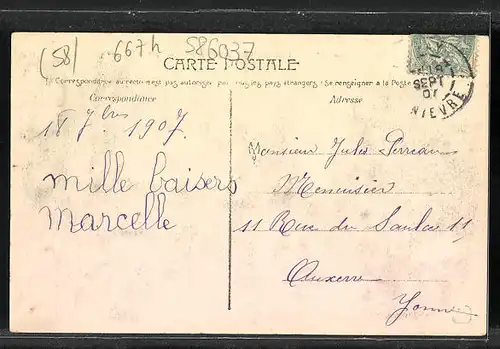 (58)
667h
586037
CARTE POSTALE
La Correspondance au recto n'est pas acceptée par tous les pays étrangers (Se renseigner à la Poste
Correspondance
Adresse
SEPT
07
NIEVRE
18 7bre 1907
mille baisers
Marcelle
Monsieur Jules Perreau
Menuisier
11 Rue du Saulce 11
Auxerre
Yonne